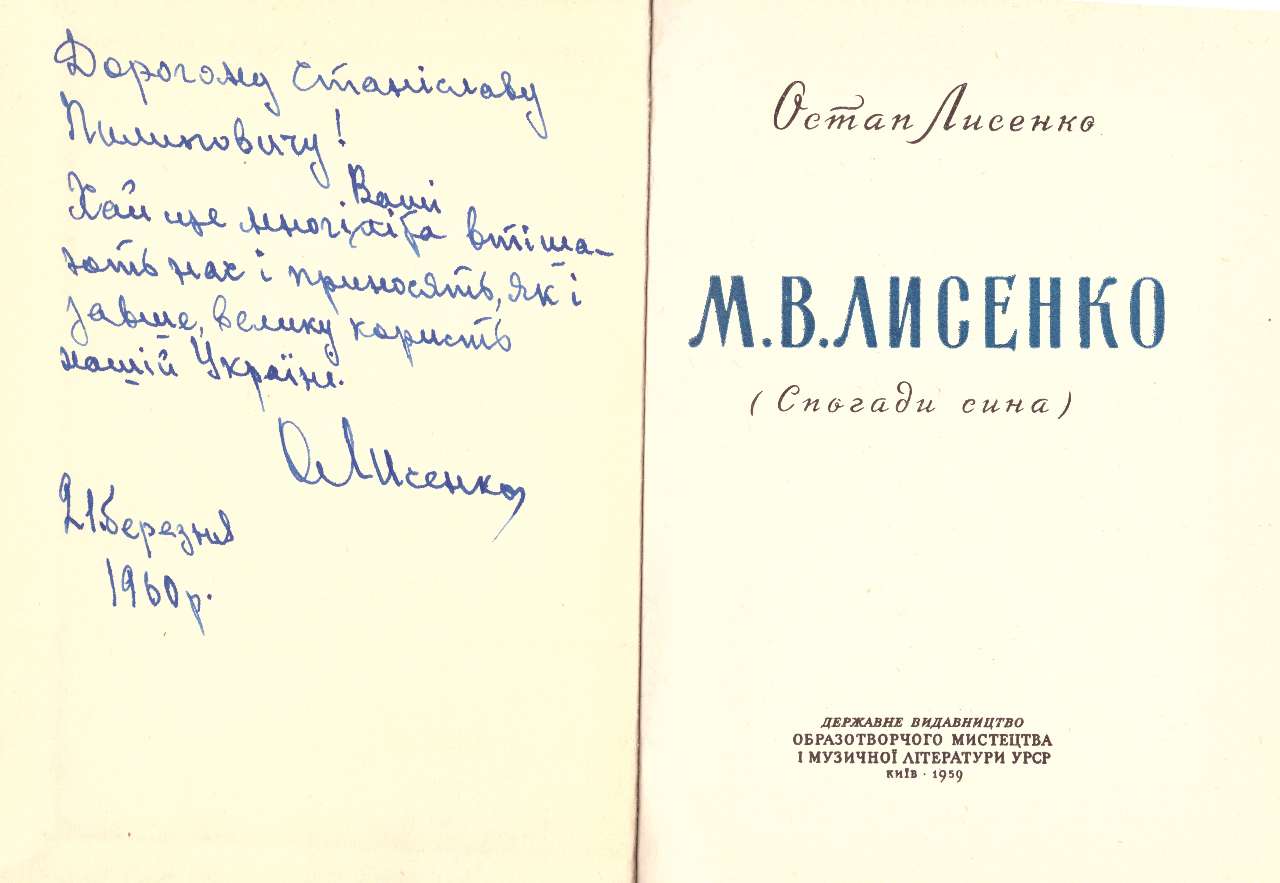 Дорогому Станіславу
Пилиповичу!
Хай ще многі Ваші літа втіша-
ють нас і приносять, як і
завше, велику користь
нашій Україні.
О Лисенко
21 березня
1960 р.
Остап Лисенко
М.В.ЛИСЕНКО
(Спогади сина)
ДЕРЖАВНЕ ВИДАВНИЦТВО
ОБРАЗОТВОРЧОГО МИСТЕЦТВА
І МУЗИЧНОЇ ЛІТЕРАТУРИ УРСР
КИЇВ · 1959